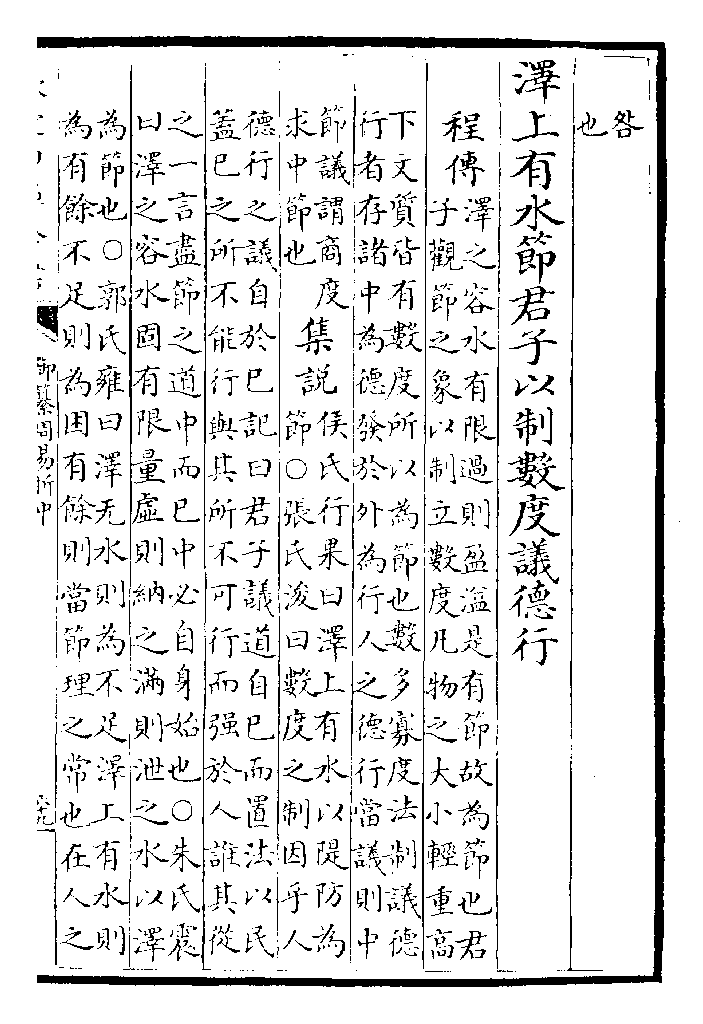 咎
也
澤上有水節君子以制數度議德行
程傳
澤之容水有限過則盈溢是有節故為節也君
子觀節之象以制立數度凡物之大小輕重高
下文質皆有數度所以為節也數多寡度法制議德
行者存諸中為德發於外為行人之德行當議則中
節議謂商度
求中節也
集說
侯氏行果曰澤上有水以隄防為
節○張氏浚曰數度之制因乎人
德行之議自於已記曰君子議道自已而置法以民
蓋已之所不能行與其所不可行而强於人誰其從
之一言盡節之道中而已中必自身始也○朱氏震
曰澤之容水固有限量虛則納之滿則泄之水以澤
為節也○郭氏雍曰澤无水則為不足澤上有水則
為有餘不足則為困有餘則當節理之常也在人之
御纂周易折中